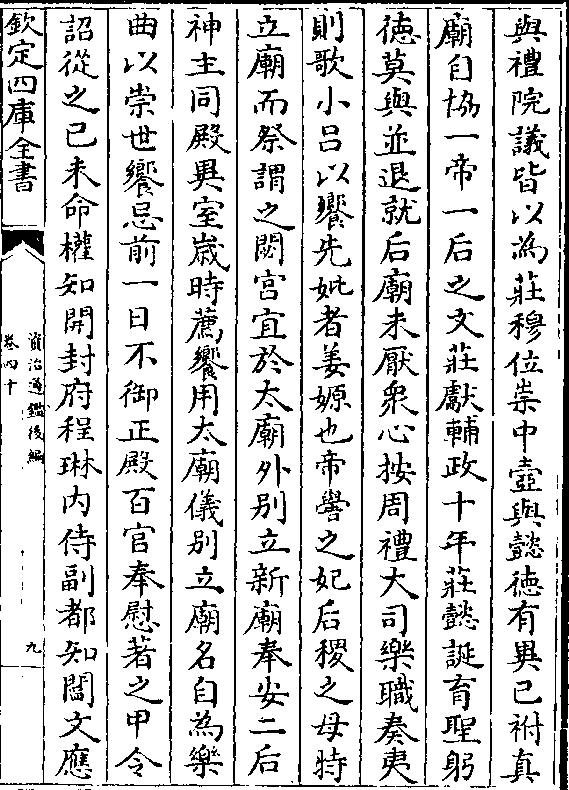 與禮院議皆以為莊穆位崇中壼與懿德有異已祔真
廟自協一帝一后之文莊獻輔政十年莊懿誕育聖躬
徳莫與並退就后廟未厭衆心按周禮大司樂職奏夷
則歌小呂以饗先妣者姜嫄也帝嚳之妃后稷之母特
立廟而祭謂之閟宮宜於太廟外别立新廟奉安二后
神主同殿異室歲時薦饗用太廟儀别立廟名自為樂
曲以崇世饗忌前一日不御正殿百官奉慰著之甲令
詔從之已未命權知開封府程琳内侍副都知閻文應
欽定四庫全書
資治通鑑後編
卷四十
九